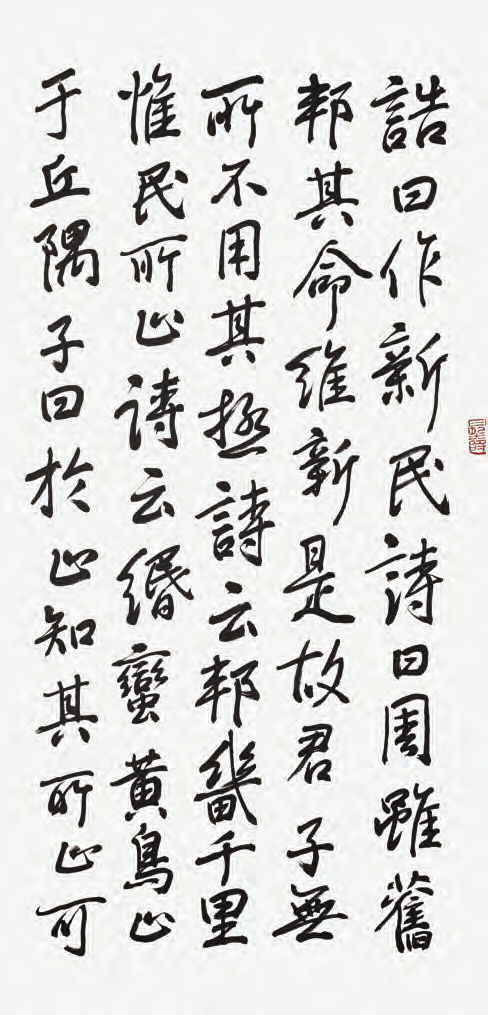 誥曰作新民詩曰周雖舊
邦其命維新是故君子無
所不用其極詩云邦畿千里
惟民所止詩云緡蠻黃鳥止
于丘隅子曰於止知其所止可